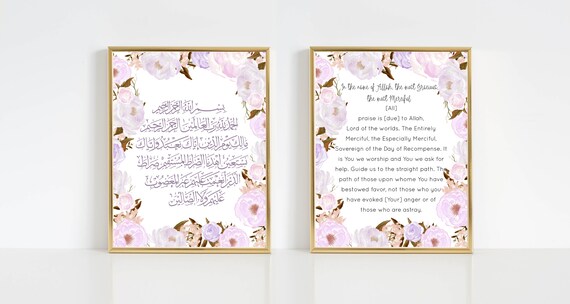 بسم الله الرحمن الرحيم
الحمد لله رب العالمين الرحمن الرحيم
مالك يوم الدين إياك نعبد وإياك
نستعين اهدنا الصراط المستقيم صراط
الذين أنعمت عليهم غير المغضوب
عليهم ولا الضالين
In the name of Allah, the most Gracious,
the most Merciful
[All]
praise is [due] to Allah,
Lord of the worlds, The Entirely
Merciful, the Especially Merciful,
Sovereign of the Day of Recompense. It
is You we worship and You we ask for
help. Guide us to the straight path, The
path of those upon whome You have
bestowed favor, not those who you
have evoked [Your] anger or of
those who are astray.